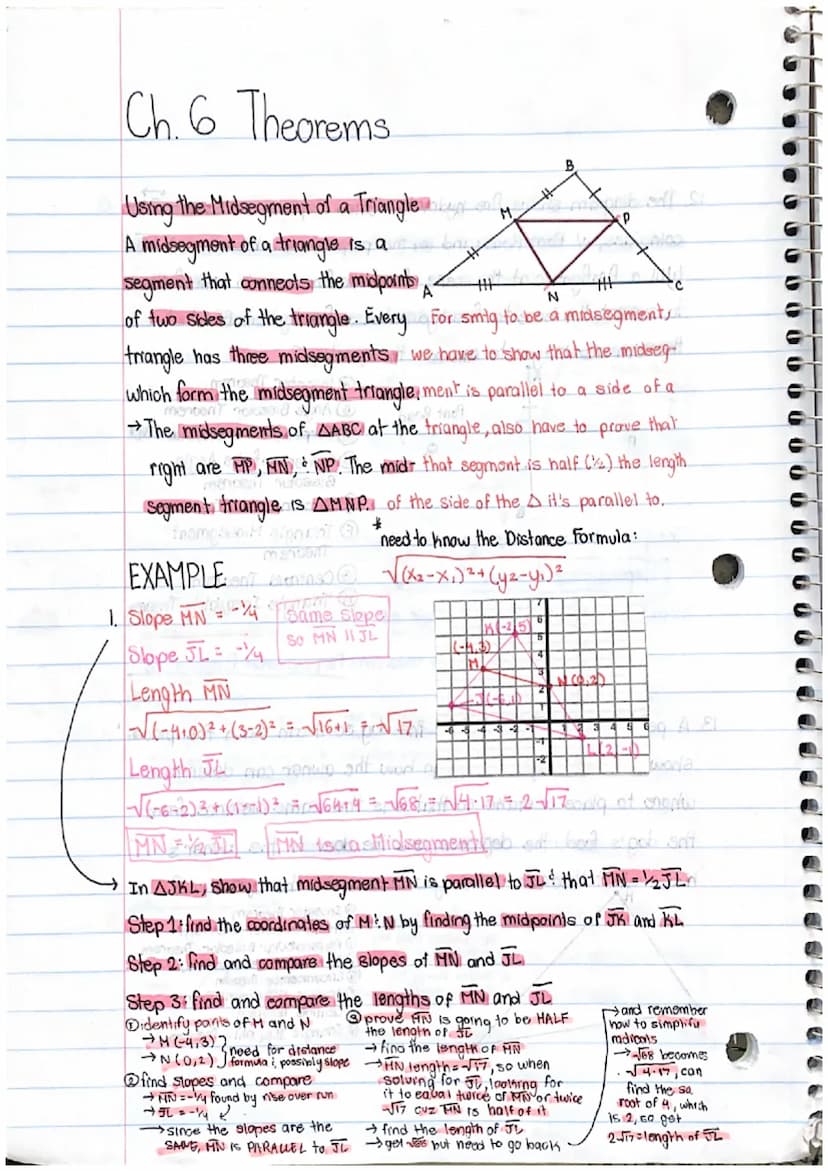 Ch. 6 Theorems
Using the Midsegment of a Triangle
A midsegment of a triangle is a
segment that connects the midpoints
of two sides of the triangle. Every
triangle has three midsegments,
which form the midsegment triangle.
→The midsegments of △ABC at the
right are MP, MN, & NP. The mid-
segment triangle is △MNP.
B
M
P
A
N
C
For smtg to be a midsegment,
we have to show that the midseg-
ment is parallel to a side of a
triangle, also have to prove that
that segment is half (½) the length
of the side of the △ it's parallel to.
*need to know the Distance Formula:
√(x₂-x₁)²+(y₂-y₁)²
EXAMPLE
1. Slope MN = -¼
Slope JL = -¼
same slope
so MN || JL
Length MN
√(-4+0)²+(3-2)² = √16+1 = √17
Length JL
√(-6-2)²+(1--1)² = √64+4 = √68 = √4·17 = 2√17
MN = ½ JL
MN is a Midsegment
K(-2,5)
(-4,3)
M
N(0,2)
J(-6,1)
L(2,-1)
7
6
5
4
3
2
1
-6 -5 -4 -3 -2 -1 2 3 4 5 6
-1
-2
→ In △JKL, show that midsegment MN is parallel to JL & that MN = ½ JL
Step 1: find the coordinates of M & N by finding the midpoints of JK and KL
Step 2: find and compare the slopes of MN and JL
Step 3: find and compare the lengths of MN and JL
① identify points of M and N
→ M(-4,3)
→ N(0,2)
need for distance
formula & possibly slope
② find slopes and compare
→ MN = -¼ found by rise over run
→ JL = -¼
→ since the slopes are the
SAME, MN is PARALLEL to JL
③ prove MN is going to be HALF
the length of JL
→ find the length of MN
→ MN length = √17, so when
solving for JL, looking for
it to equal twice of MN or twice
√17 cuz MN is half of it
→ find the length of JL
→ get √68 but need to go back
→ and remember
how to simplify
radicals
→ √68 becomes
√4·17, can
find the sq.
root of 4, which
is 2, so get
2√17 = length of JL